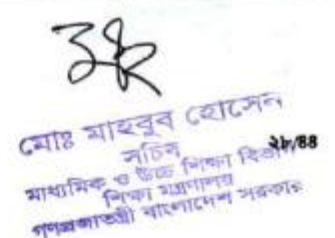 মোঃ মাহবুব হোসেন
সচিব
২৮/৪৪
মাধ্যমিক ও উচ্চ শিক্ষা বিভাগ
শিক্ষা মন্ত্রণালয়
গণপ্রজাতন্ত্রী বাংলাদেশ সরকার